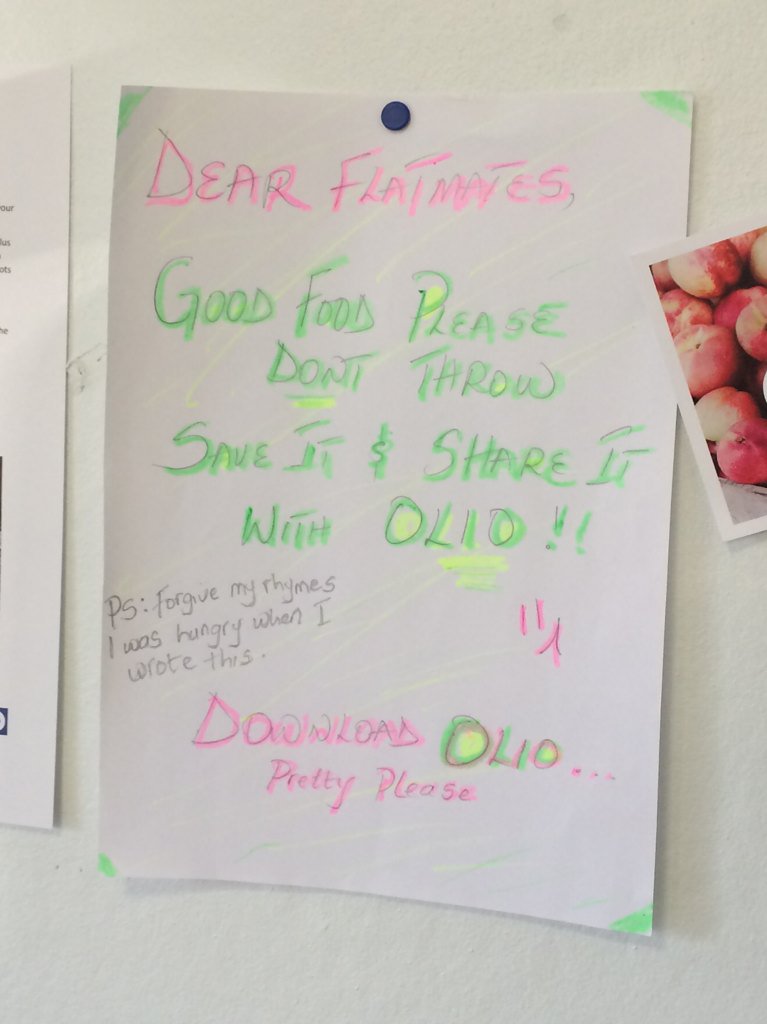 DEAR FLATMATES,
GOOD FOOD PLEASE
DONT THROW
SAVE IT & SHARE IT
WITH OLIO !!
PS: Forgive my rhymes
I was hungry when I
wrote this.
DOWNLOAD OLIO...
Pretty Please
your
lus
ots
he